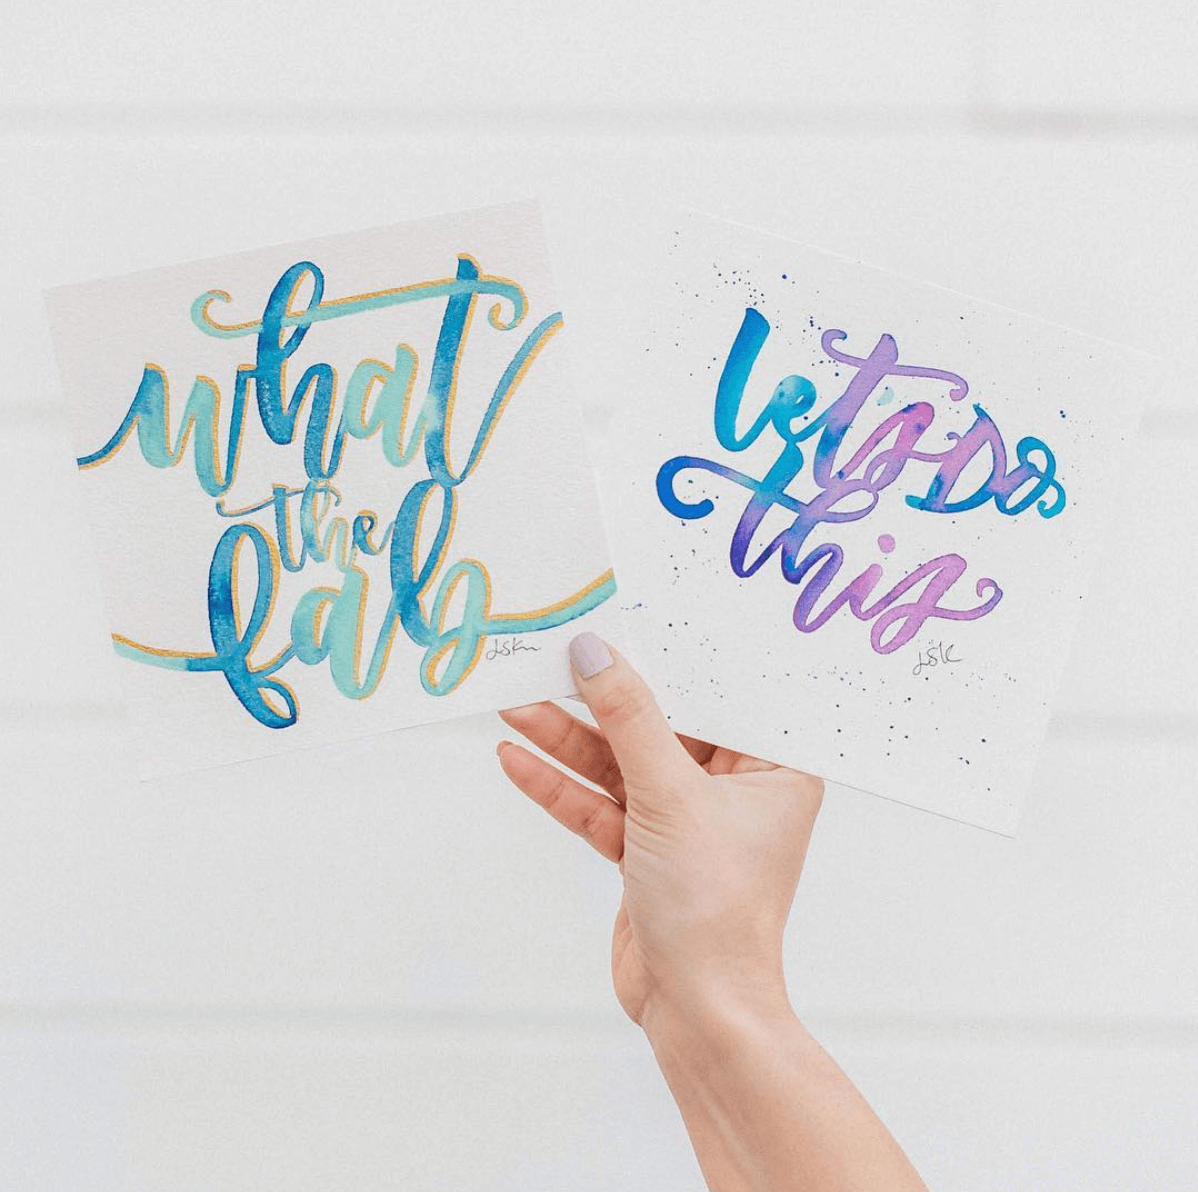 what
the
fab
let's Do
this
LSK